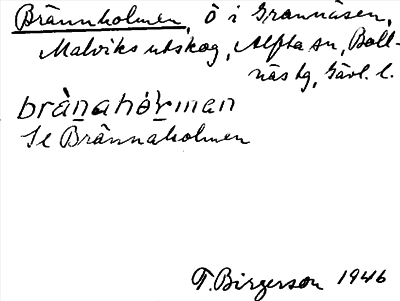 Brännholmen, Ö i Grannäsen,
Malviks utskog, Alfta sn, Boll-
näs tg, Gävl. l.
brànahó̱rman
Se Brännaholmen
T. Birgerson 1946